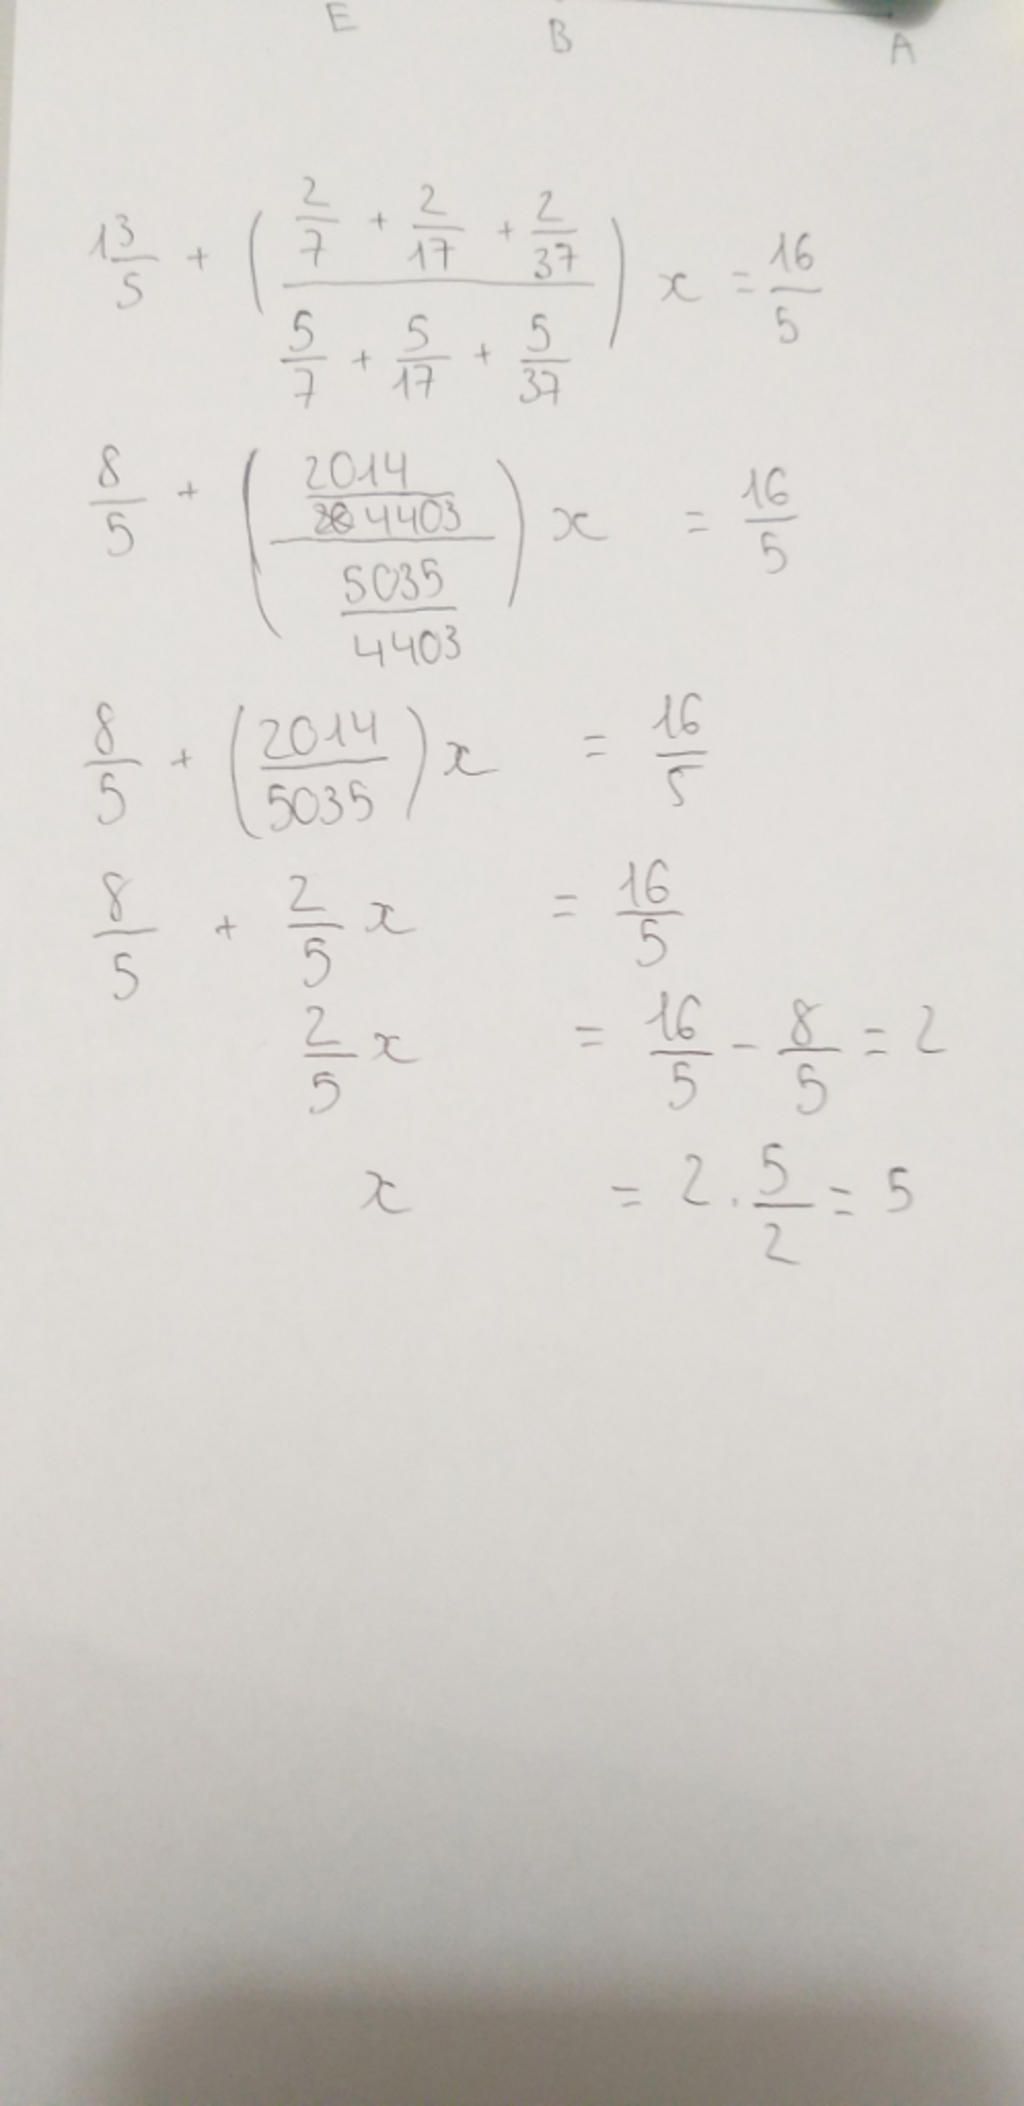 E B A
1 3/5 + ((2/7 + 2/17 + 2/37)/(5/7 + 5/17 + 5/37)) x = 16/5
8/5 + ((2014/4403)/(5035/4403)) x = 16/5
8/5 + (2014/5035) x = 16/5
8/5 + 2/5 x = 16/5
2/5 x = 16/5 - 8/5 = 2
x = 2 . 5/2 = 5